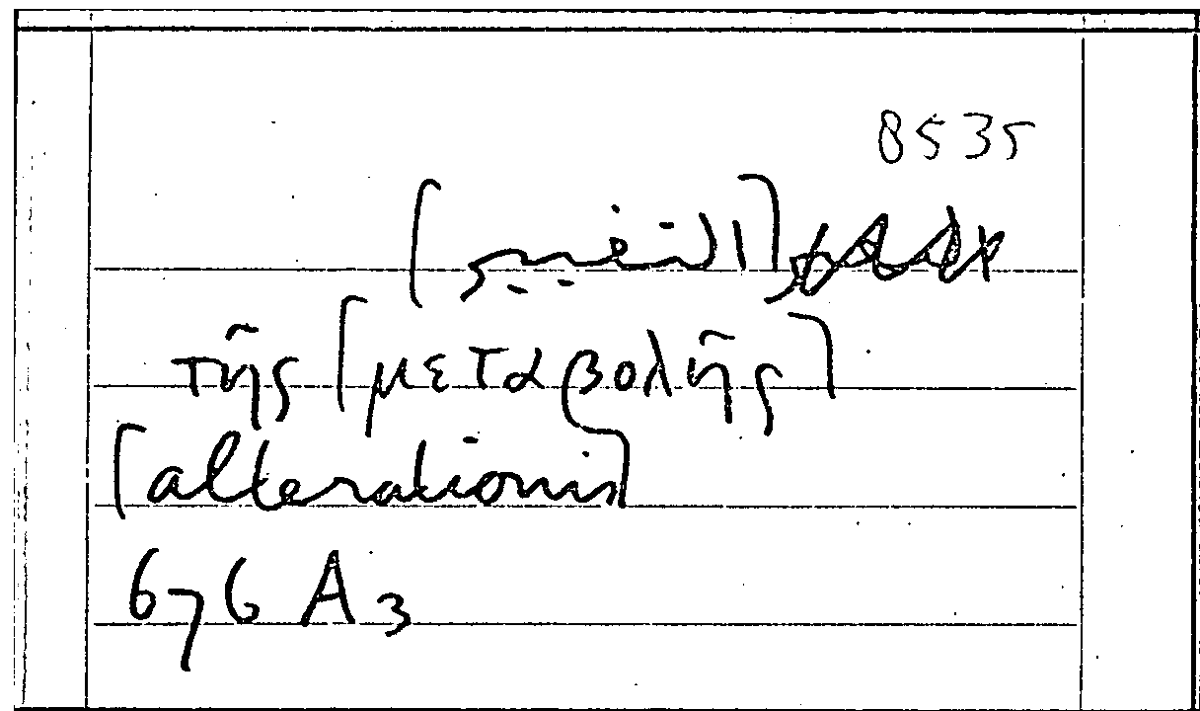 8535
[التغيير]
τῆς [μεταβολῆς]
[alterationis]
676 A3